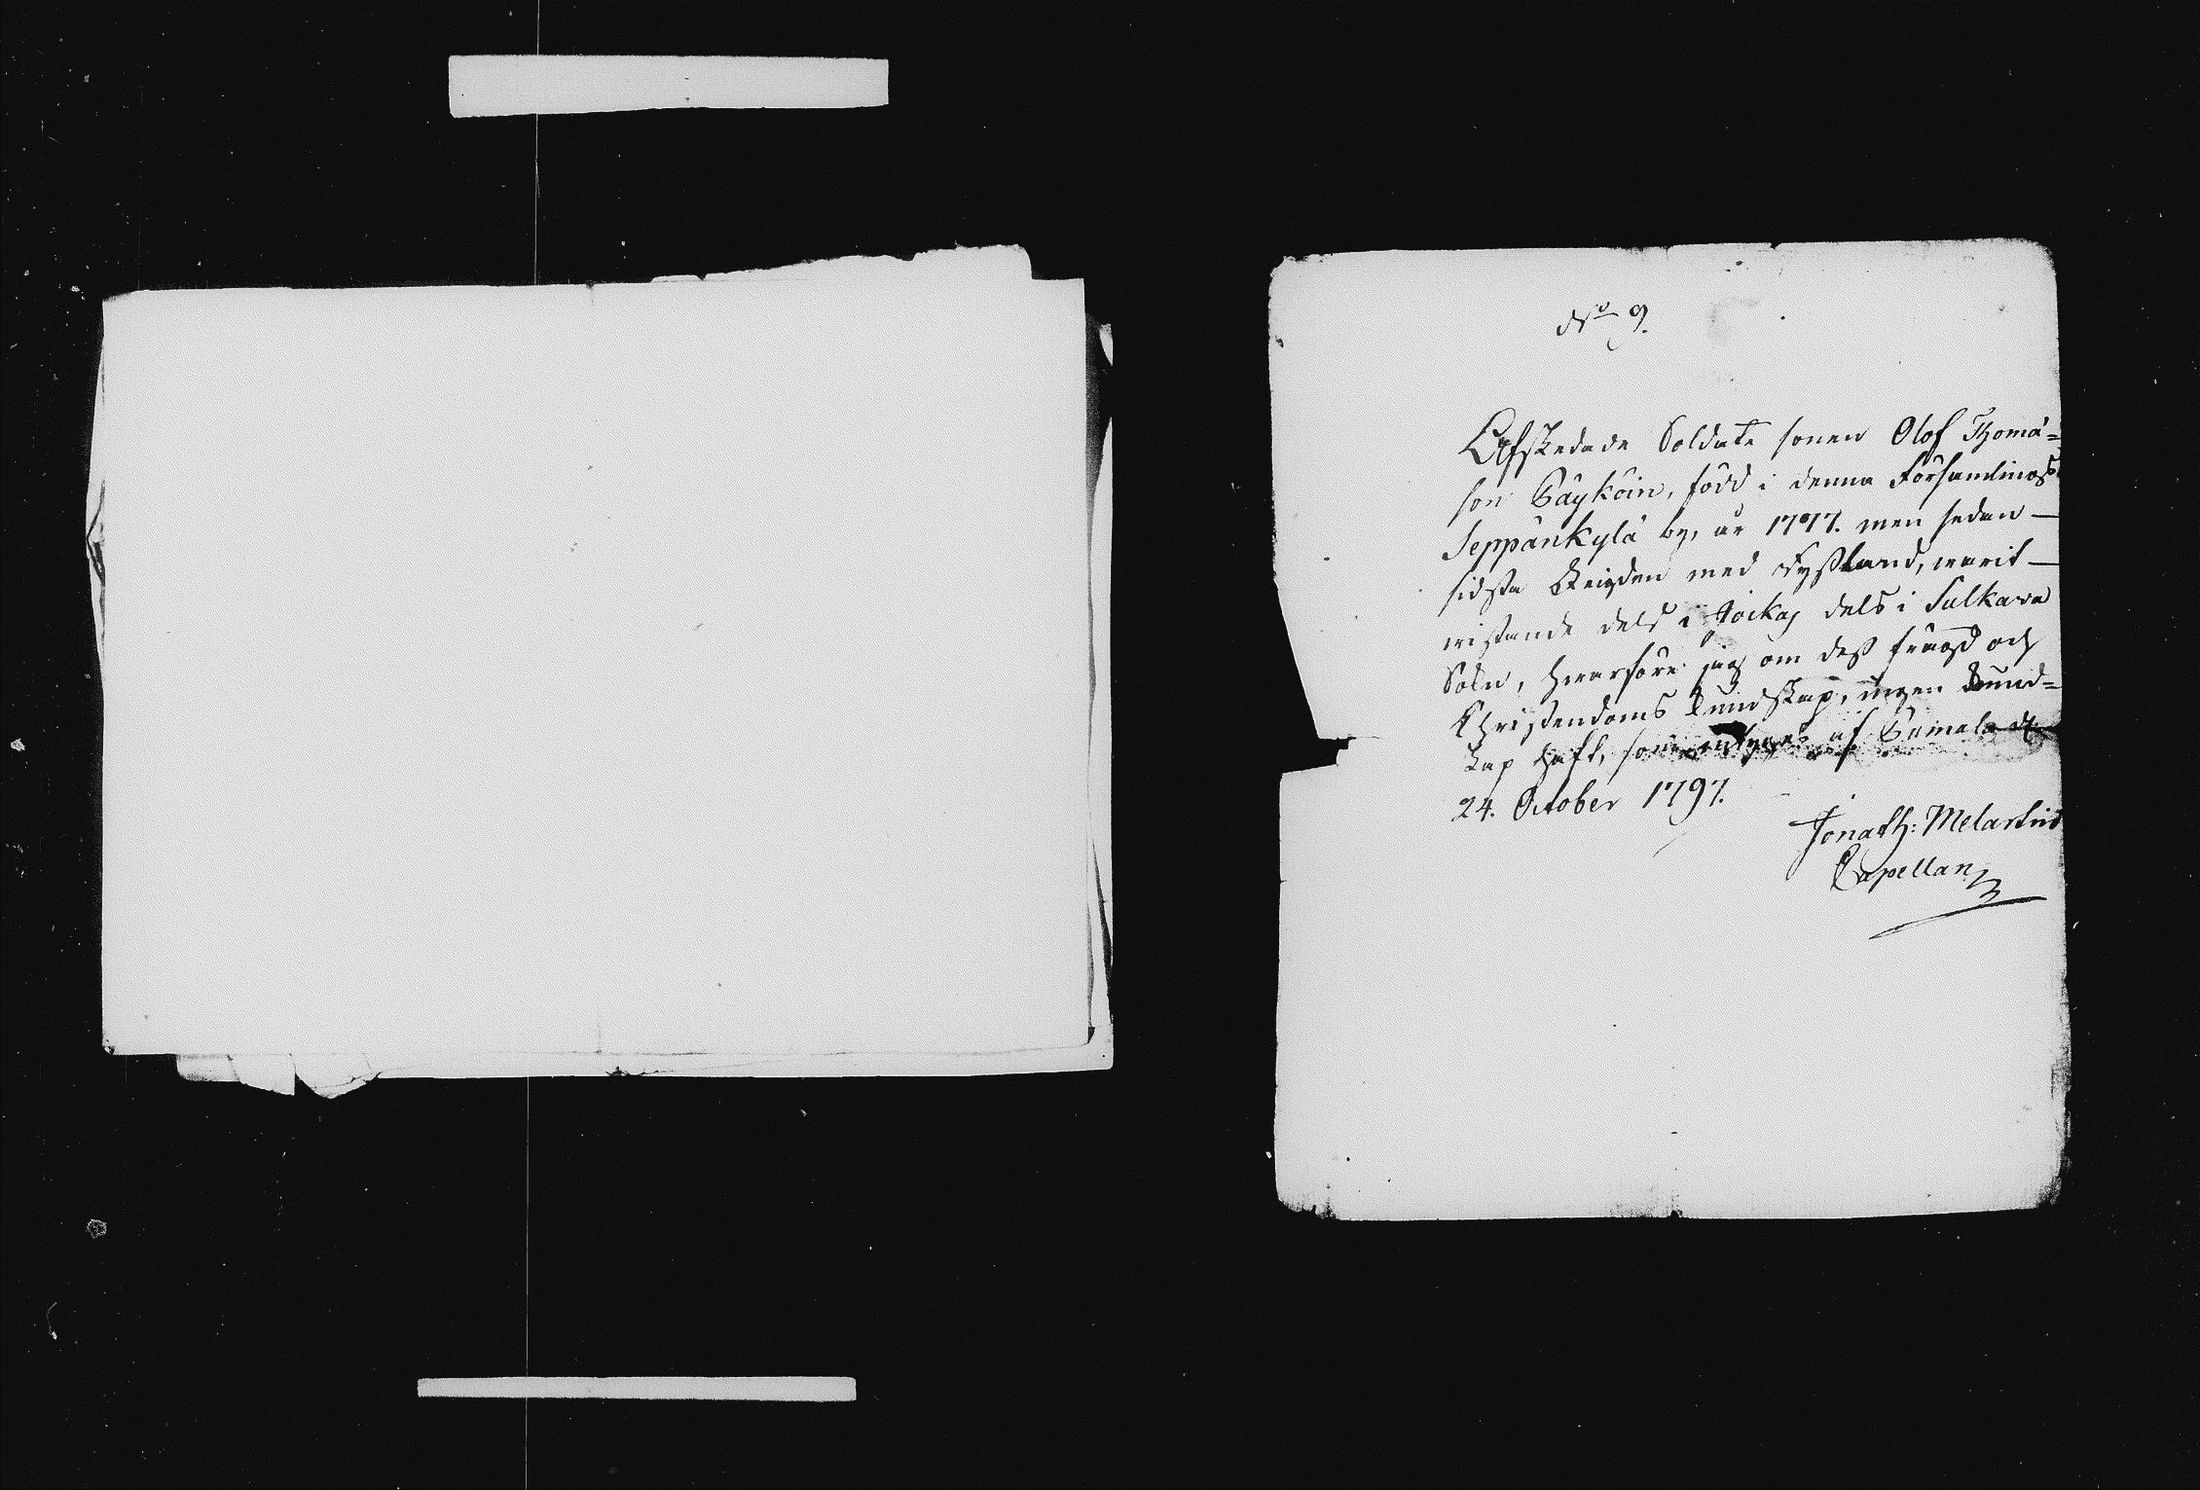 No 9.
Afskedade Soldate sonen Olof Thomas=
son Gäyköin, född i denna Församlings
Seppänkylä by, år 1777. men sedan —
sidsta Krigden med Ryssland, warit —
wistande dels i Jockas dels i Sulkava
Sokn, hwarföre jag om dess frägd och
Christendoms kundskap, ingen kund=
kap haft, som intygas af Sumala d.
24. October 1797.
Jonath: Melartin
Capellan